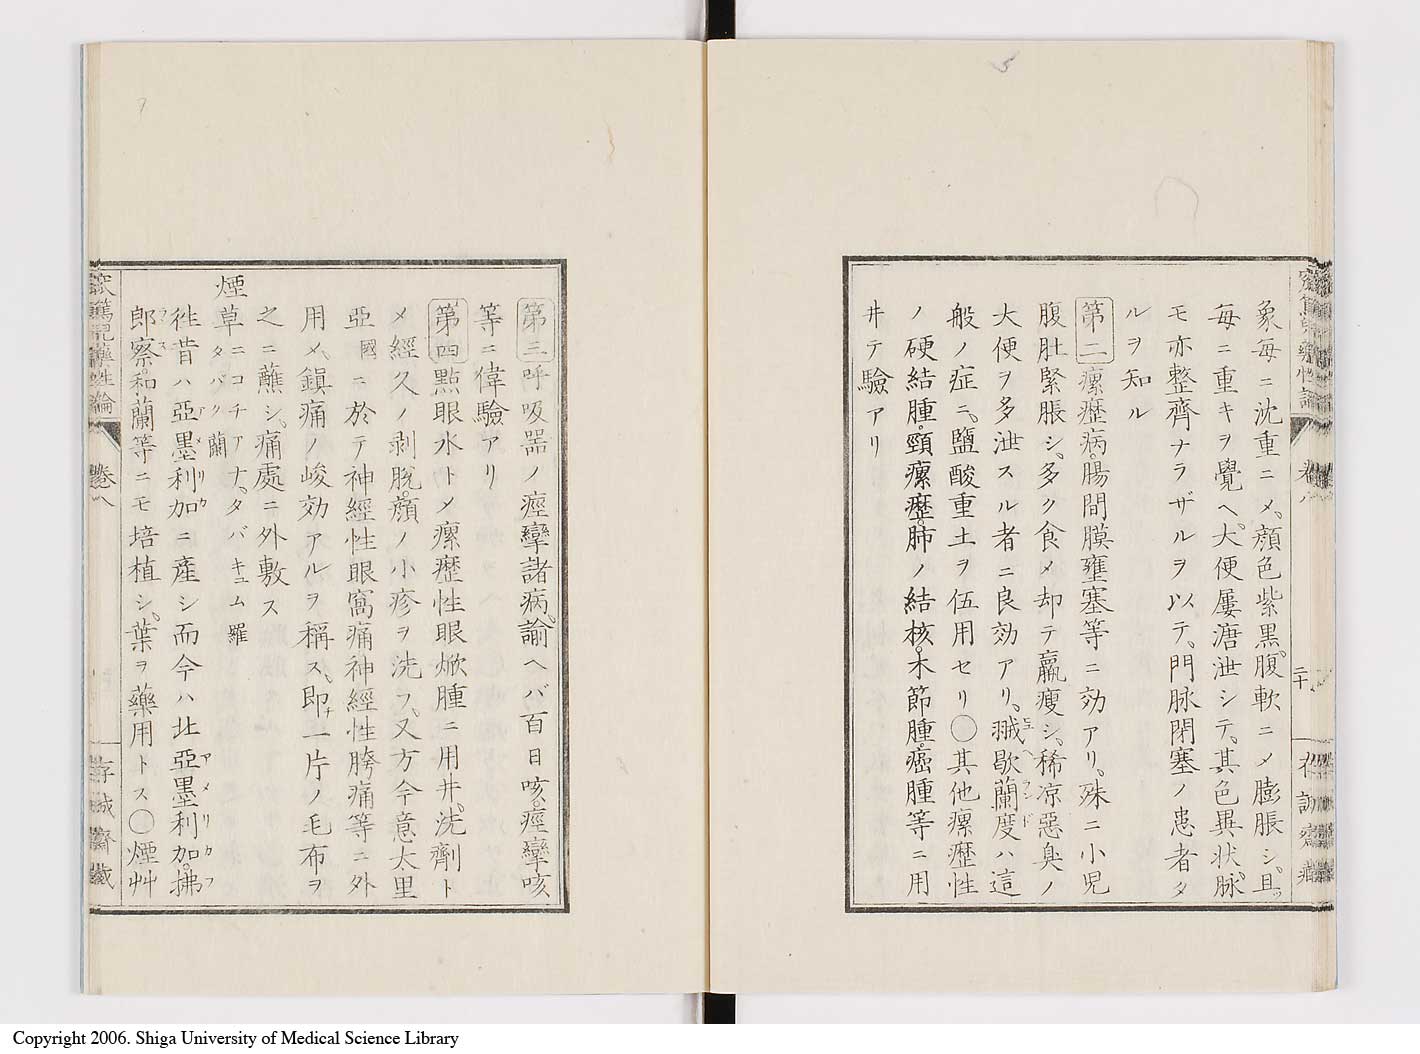 象毎ニ沈重ニメ、顔色紫黒、腹軟ニメ膨脹シ、且ツ
毎ニ重キヲ覺ヘ、大便屢溏泄シテ、其色異状、脉
モ亦整齊ナラザルヲ以テ、門脉閉塞ノ患者タ
ルヲ知ル
第二 瘰癧病、腸間膜壅塞等ニ効アリ、殊ニ小児
腹肚緊脹シ、多ク食メ却テ羸瘦シ、稀涼惡臭ノ
大便ヲ多泄スル者ニ良効アリ、蘭度ハ這
般ノ症ニ、鹽酸重土ヲ伍用セリ〇其他瘰癧性
ノ硬結腫、頸瘰癧、肺ノ結核、木節腫、癌腫等ニ用
井テ驗アリ
窊篤児藥性論 卷八 二十 存誠齋藏
第三 呼吸器ノ痙攣諸病、諭ヘバ百日咳、痙攣咳
等ニ偉驗アリ
第四 點眼水トメ瘰癧性眼焮腫ニ用井、洗劑ト
メ經久ノ剥脫、顔ノ小疹ヲ洗フ、又方今意太里
亞國ニ於テ神經性眼窩痛神經性胯痛等ニ外
用メ、鎭痛ノ峻効アルヲ稱ス、即チ一片ノ毛布ヲ
之ニ蘸シ、痛處ニ外敷ス
煙草 タバク 蘭 ニコチアナ、タバキュム 羅
徃昔ハ亞墨利加アメリカニ產シ而今ハ北亞墨利加アメリカ、拂フ
郎察ランス、和蘭等ニモ培植シ、葉ヲ藥用トス〇煙艸
窊篤児藥性論 卷八 存誠齋藏
Copyright 2006. Shiga University of Medical Science Library